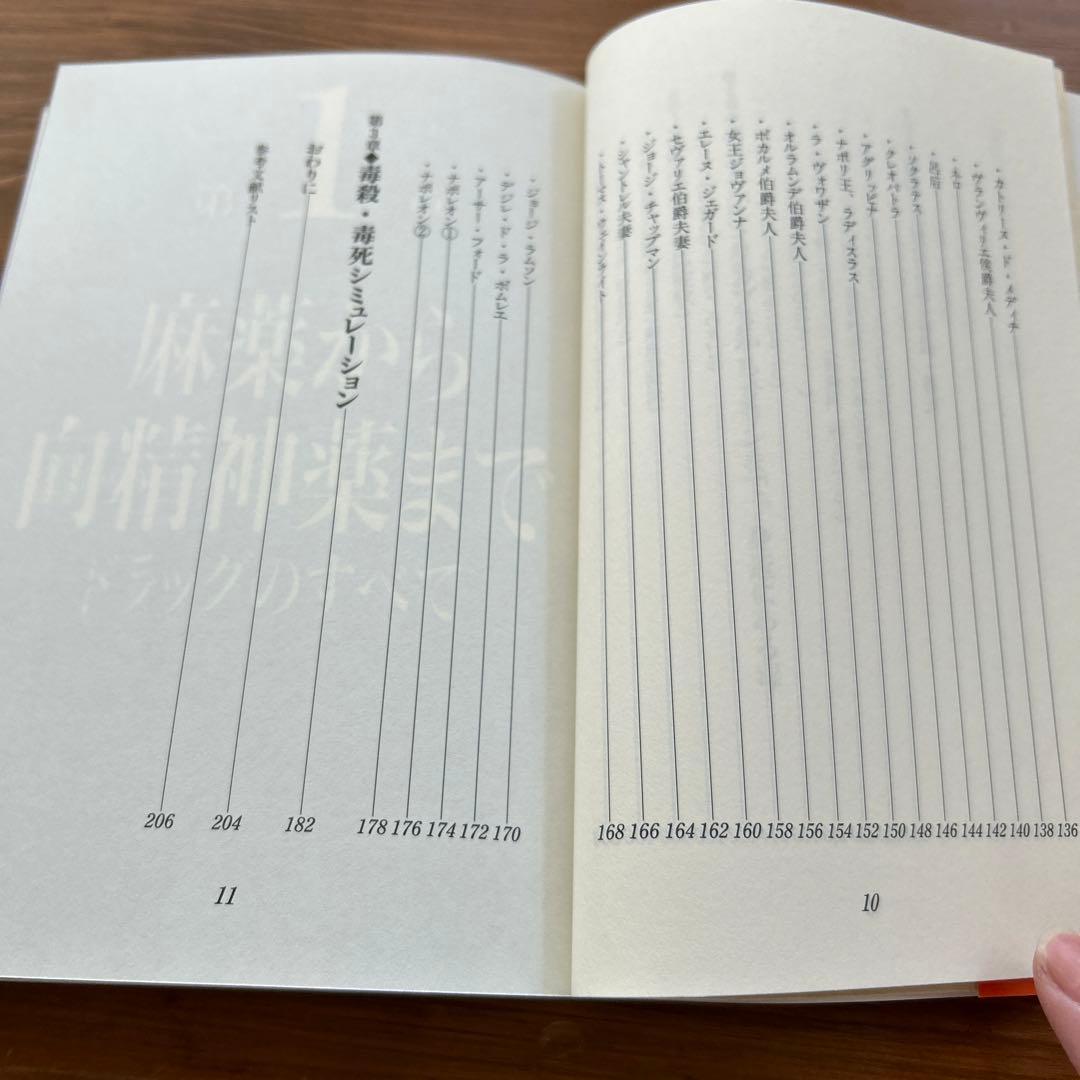 ・カトリーヌ・ド・メディチ 136
・ヴランヴィリエ侯爵夫人 138
・ネロ 140
・呂后 142
・ソクラテス 144
・クレオパトラ 146
・アグリッピナ 148
・ナポリ王、ラディスラス 150
・ラ・ヴォワザン 152
・オルラムンデ伯爵夫人 154
・ボカルメ伯爵夫人 156
・女王ジョヴァンナ 158
・エレーヌ・ジェガード 160
・セヴァリエ伯爵夫妻 162
・ジョージ・チャップマン 164
・シャントレル夫妻 166
・トーマス・ウェインライト 168
10
・ジョージ・ラムソン 170
・デジレ・ド・ラ・ポムレエ 172
・アーサー・フォード 174
・ナポレオン① 176
・ナポレオン② 178
第3章◆毒殺・毒死シミュレーション 182
おわりに 204
参考文献リスト 206
11
第1
麻薬から
向精神薬まで
ドラッグのすべて